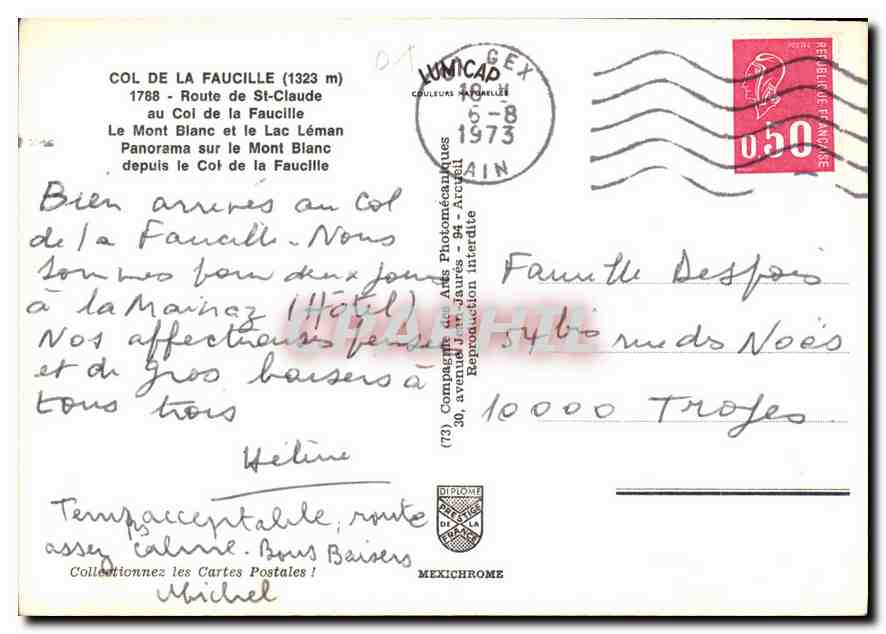 COL DE LA FAUCILLE (1323 m)
1788 - Route de St-Claude
au Col de la Faucille
Le Mont Blanc et le Lac Léman
Panorama sur le Mont Blanc
depuis le Col de la Faucille
Bien arrivés au Col
de la Faucille. Nous
sommes pour deux jours
à la Mainaz (Hôtel)
Nos affectueuses pensées
et de gros baisers à
tous trois
Hélène
Temps acceptable, route
assez calme. Bons Baisers
Michel
Collectionnez les Cartes Postales !
LUMICAP
COULEURS NATURELLES
GEX
18 H
6-8
1973
AIN
REPUBLIQUE FRANÇAISE
POSTES
0,50
(73) Compagnie des Arts Photomécaniques
30, avenue Jean-Jaurès - 94 - Arcueil
Reproduction interdite
CPAPHIL
Famille Despois
54 bis rue des Noës
10000 Troyes
DIPLOME
PRESTIGE
DE LA
FRANCE
MEXICHROME